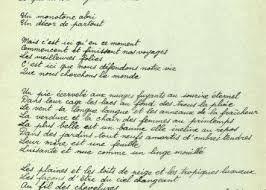 Un monotone abri
Un décor de partout
Mais c'est ici qu'en ce moment
Commencent et finissent nos voyages
Les meilleures folies
C'est ici que nous défendons notre vie
Que nous cherchons le monde
Un pic écervelé aux nuages fuyants au sourire éternel
Dans leur cage les lacs au fond des trous la pluie
Le vent sa longue langue et les anneaux de la fraîcheur
La verdure et la chair des femmes au printemps
La plus belle est un baume elle incline au repos
Dans des jardins tout neufs amortis d'ombres tendres
Leur mère est une feuille
Luisante et nue comme un linge mouillé
Les plaines et les toits de neige et les tropiques luxueux
Les façons d'être du ciel changeant
Au fil des chevelures